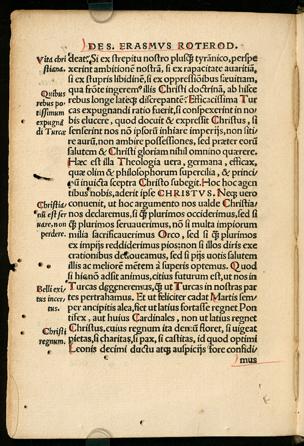 DES. ERASMVS ROTEROD.
Vita chri
stiana.
Quibus
rebus po
tissimum
expugnādi
di Turcæ
Christia
nū est ser
uare, non
perdere.
Belli exi
tus incer
tus.
Christi
regnum.
deat. Si ex strepitu nostro plusꝗ̃ tyrānico, perspe
xerint ambitionē nostrā, si ex rapacitate auaritiā,
si ex stupris libidinē, si ex oppressiōibus sæuitiam,
qua frōte ingeremꝰ illis Christi doctrinā, ab hisce
rebus longe lateqꝫ discrepantē. Efficacissima Tur
cas expugnandi ratio fuerit, si conspexerint in no
bis elucere, quod docuit & expressit Christus, si
senserint nos nō ipsorū inhiare imperijs, non siti
re aurū, non ambire possessiones, sed præter eorū
salutem & Christi gloriam nihil omnino quærere.
Hæc est illa Theologia uera, germana, efficax,
quæ olim & philosophorum supercilia, & princi
pū inuicta sceptra Christo subegit. Hoc hoc agen
tibus nobis, aderit ipse CHRISTVS. Neqꝫ uero
conuenit, ut hoc argumento nos ualde Christia
nos declaremus, si ꝗ̃ plurimos occiderimus, sed si
ꝗ̃ plurimos seruauerimus, nō si multa impiorum
milia sacrificauerimus Orco, sed si ꝗ̃ plurimos
ex impijs reddiderimus pios: non si illos diris exe
crationibus deuoueamus, sed si pijs uotis salutem
illis ac meliorē mētem à superis optemus. Quod
si hic animus nō adsit, citius futurum est, ut nos in
Turcas degeneremus, ꝗ̃ ut Turcas in nostras par
tes pertrahamus. Et ut feliciter cadat Martis sem
per ancipitis alea, fiet ut latius fortasse regnet Pon
tifex, aut huius Cardinales, non ut latius regnet
Christus, cuius regnum ita demū floret, si uigeat
pietas, si charitas, si pax, si castitas, id quod optimi
Leonis decimi ductu atqꝫ auspicijs fore confidi
mus